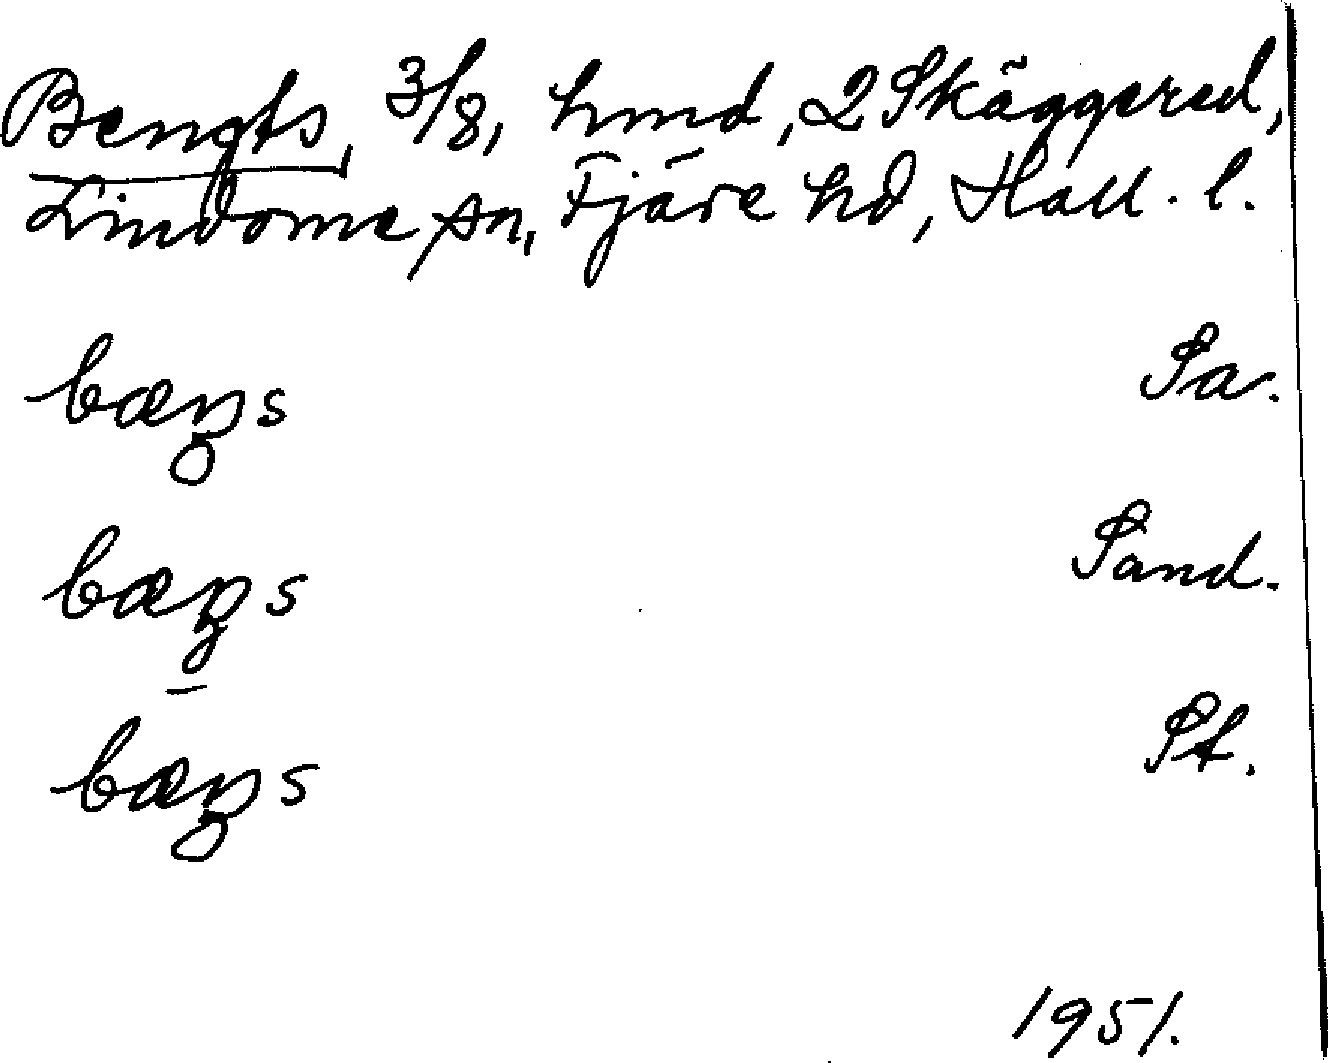 Bengts, 3/8, hmd, 2 Skäggered,
Lindome sn, Fjäre hd, Hall. l.
Sa.
Sand.
St.
1951.